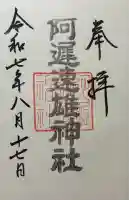 奉拝
阿遅速雄神社
令和七年八月十七日